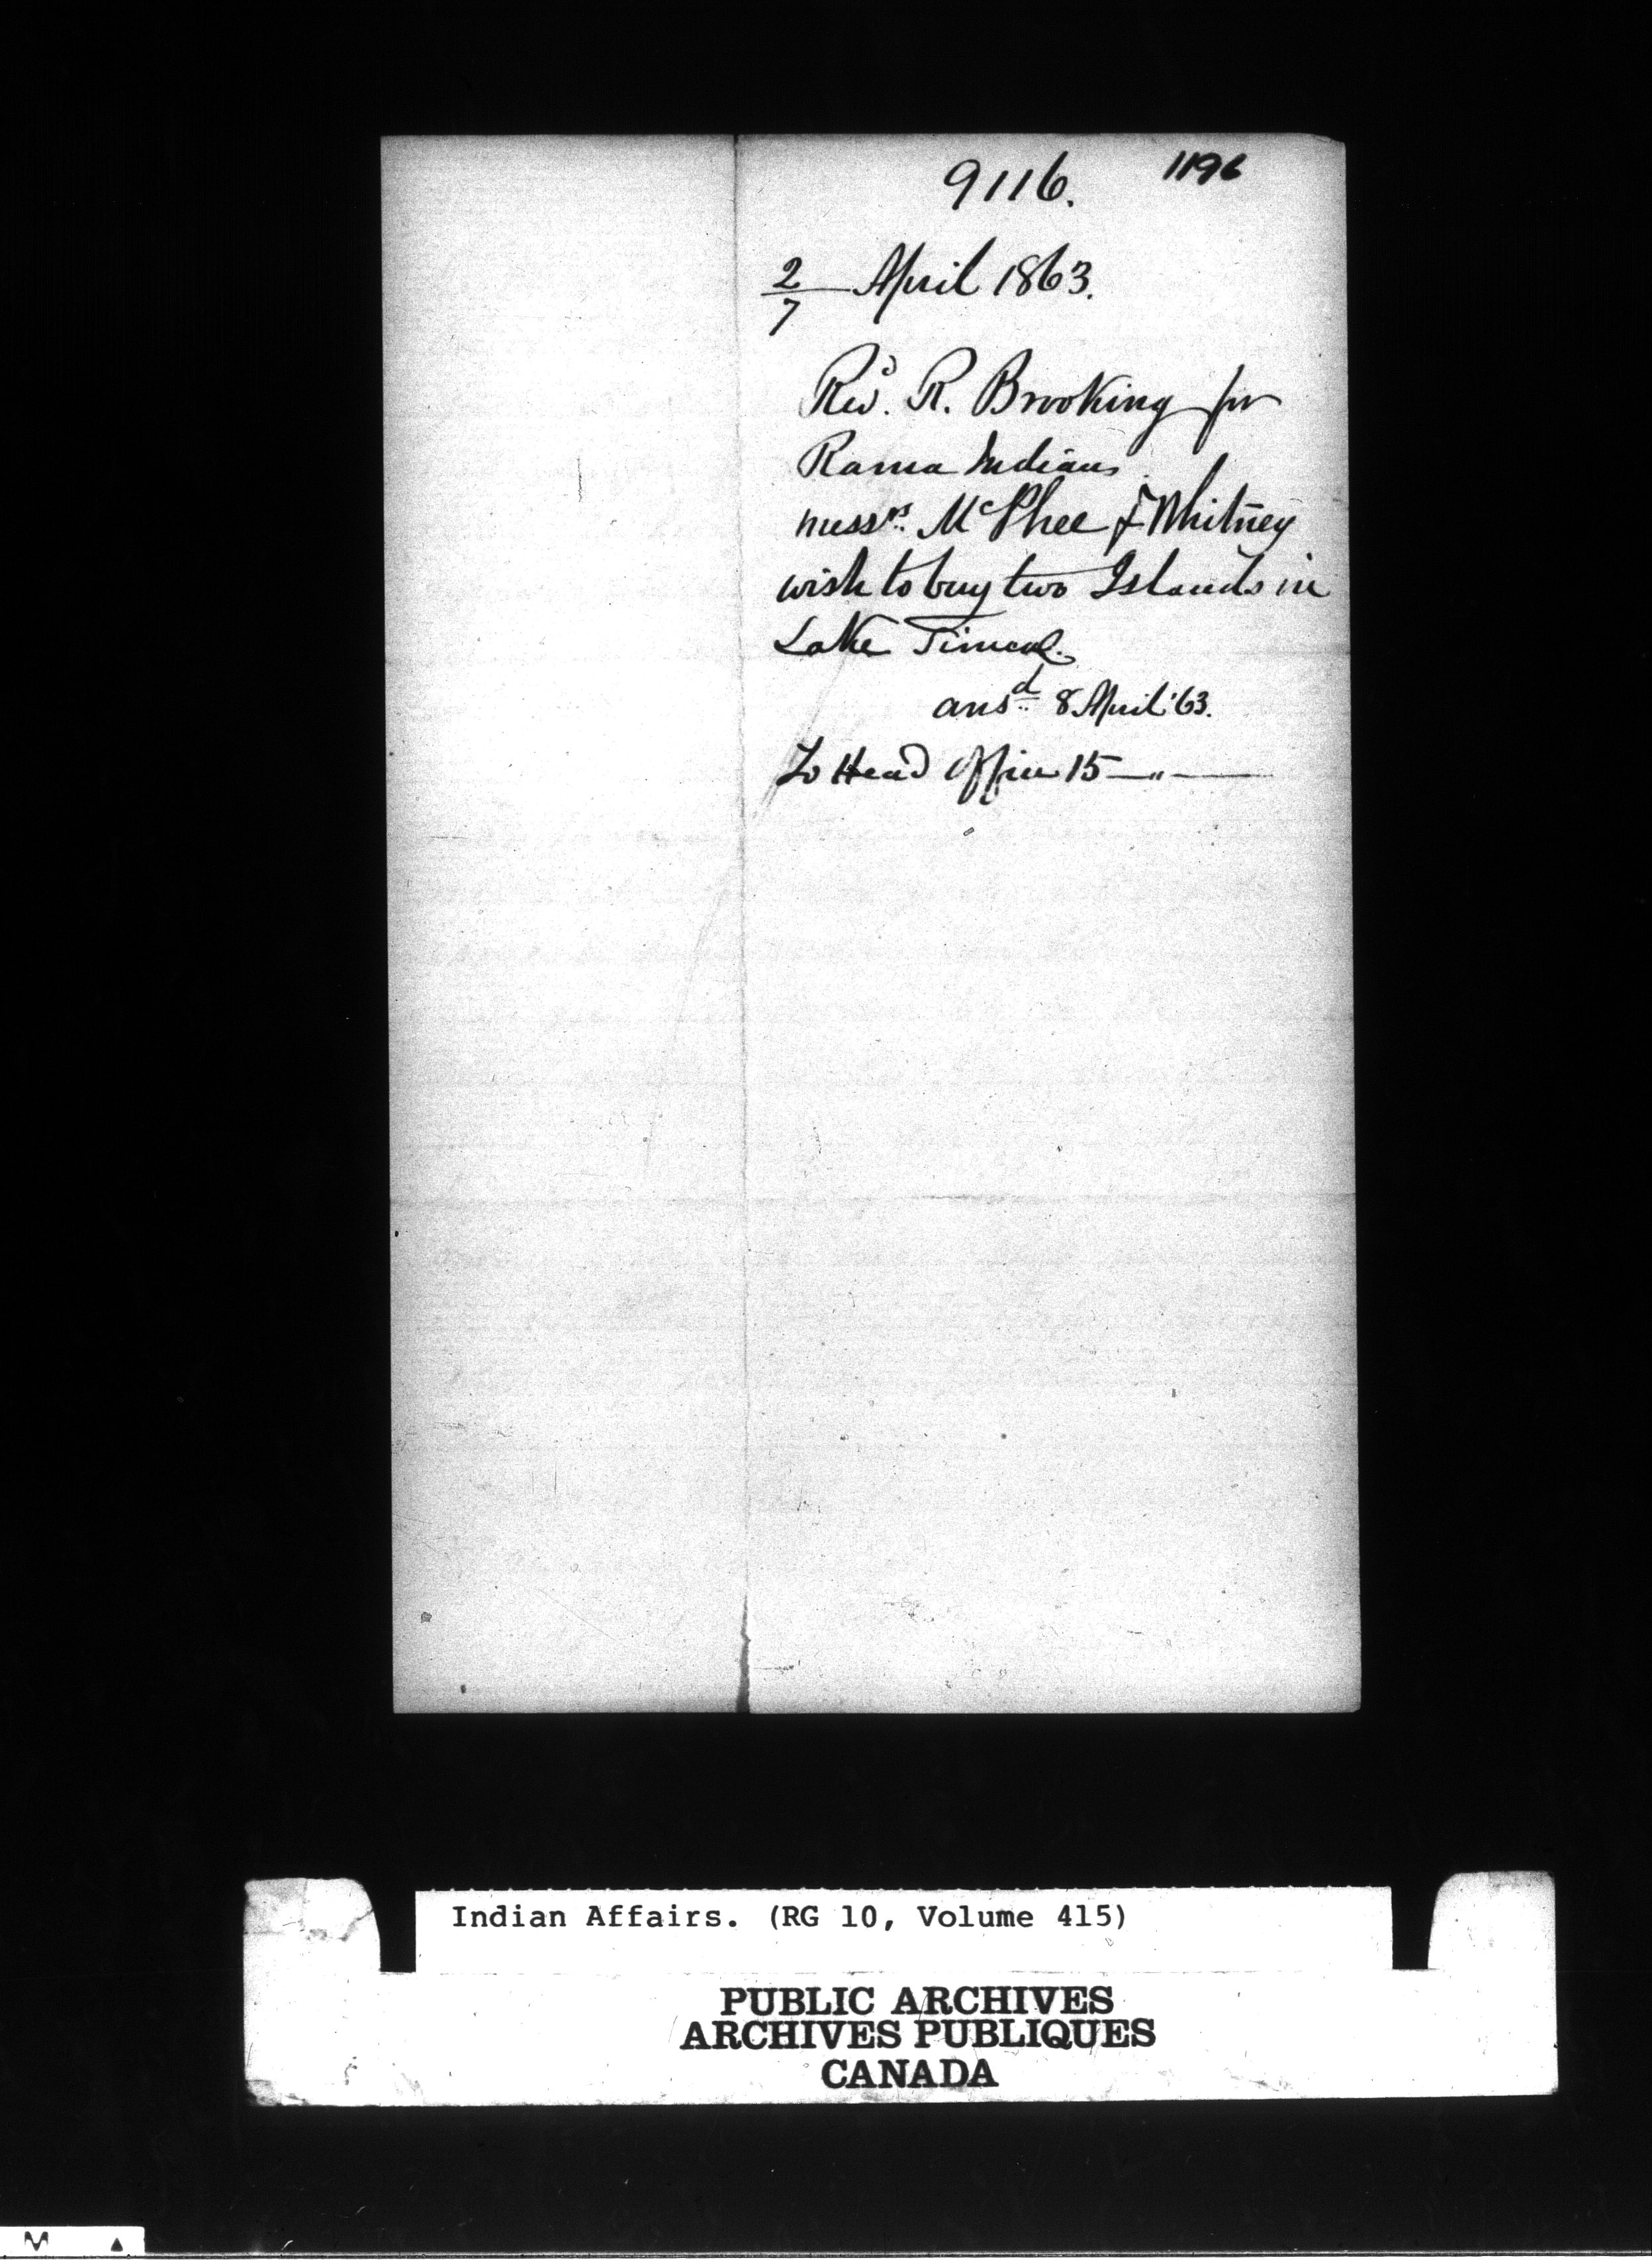 9116. 1196
2/7 April 1863.
Revd. R. Brooking for
Rama Indians.
Messrs. McPhee & Whitney
wish to buy two Islands in
Lake Simcoe.
ansd. 8 April '63.
To Head Office 15 — " —
Indian Affairs. (RG 10, Volume 415)
PUBLIC ARCHIVES
ARCHIVES PUBLIQUES
CANADA